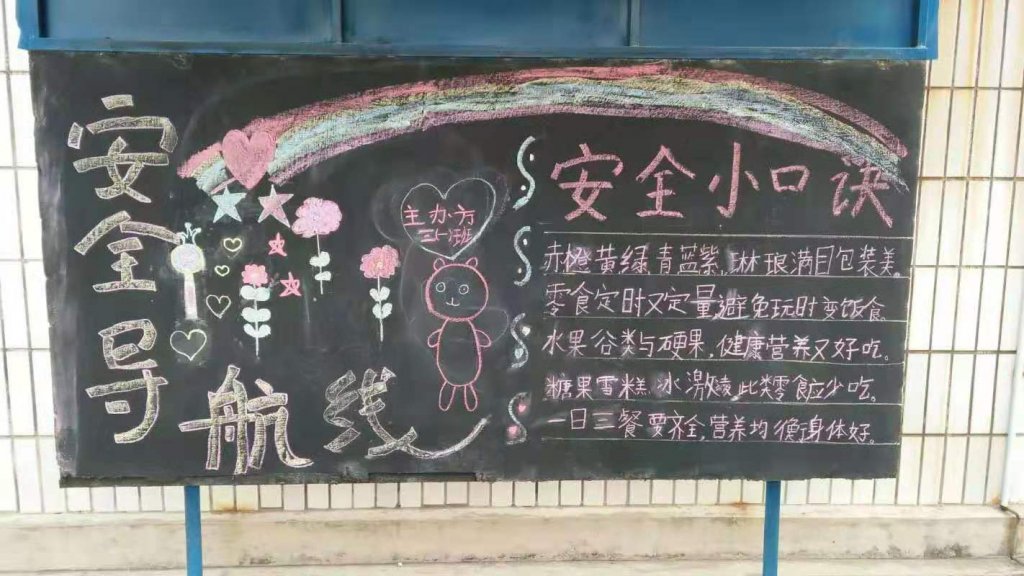 安全导航线
主办方
安全小口诀
赤橙黄绿青蓝紫,琳琅满目包装美。
零食定时又定量,避免玩时变饭食。
水果谷类与硬果,健康营养又好吃。
糖果雪糕冰激凌,此类零食应少吃。
一日三餐要齐全,营养均衡身体好。